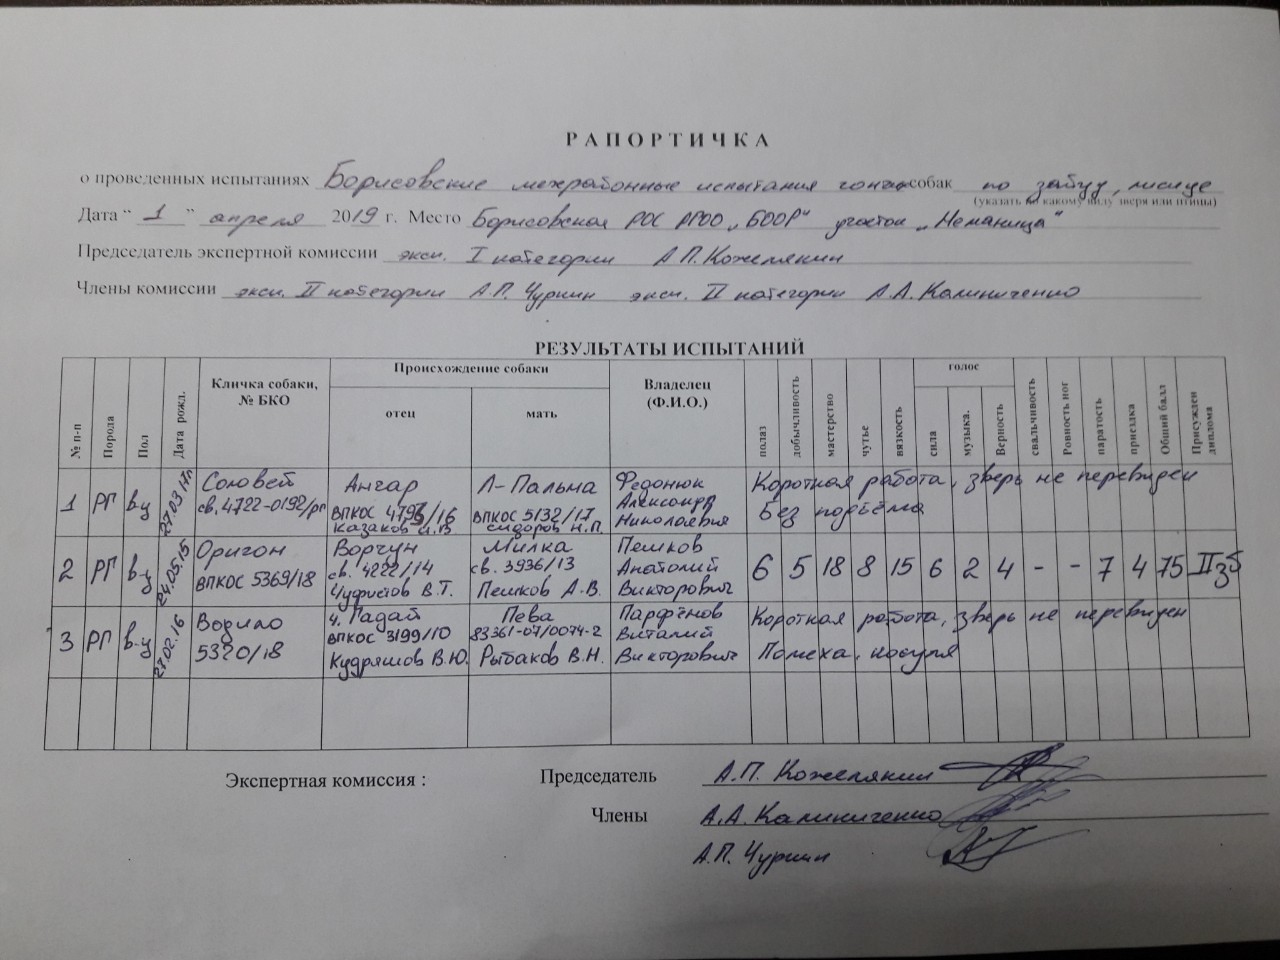 РАПОРТИЧКА
о проведенных испытаниях Борисовские межрайонные испытания гончих собак по зайцу, лисице
(указать по какому виду зверя или птицы)
Дата " 1 " апреля 2019 г. Место Борисовская РОС РГОО „БООР" участок „Неманица"
Председатель экспертной комиссии эксп. I категории А.П. Кожемякин
Члены комиссии эксп. II категории А.П. Чуркин эксп. II категории А.А. Калиниченко
РЕЗУЛЬТАТЫ ИСПЫТАНИЙ
№ п-п Порода Пол Дата рожд. Кличка собаки, № БКО Происхождение собаки отец мать Владелец (Ф.И.О.) полаз добычливость мастерство чутье вязкость голос сила музыка. Верность свальчивость Ровность ног паратость приездка Общий балл Присужден диплома
1 РГ вц 27.03.17г Соловей Ангар Л-Пальма Федонюк Короткая работа, зверь не перевиден
св. 4722-0192/рг ВПКОС 4793/16 ВПКОС 5132/17 Александр Без подъёма
Казаков И.В Сидоров Н.П. Николаевич
2 РГ в-ц 24.05.15 Оригон Ворчун Милка Пешков 6 5 18 8 15 6 2 4 - - 7 4 75 II зб
ВПКОС 5369/18 св. 4222/14 св. 3936/13 Анатолий
В.Т. Пешков А.В. Викторович
3 РГ в-ц 27.02.16 Водило ч. Гадай Пева Парфёнов Короткая работа, зверь не перевиден
5320/18 ВПКОС 3199/10 83361-07/0074-2 Виталий
Кудряшов В.Ю. Рыбаков В.Н. Викторович Помеха, косуля
Экспертная комиссия : Председатель А.П. Кожемякин
Члены А.А. Калиниченко
А.П. Чуркин